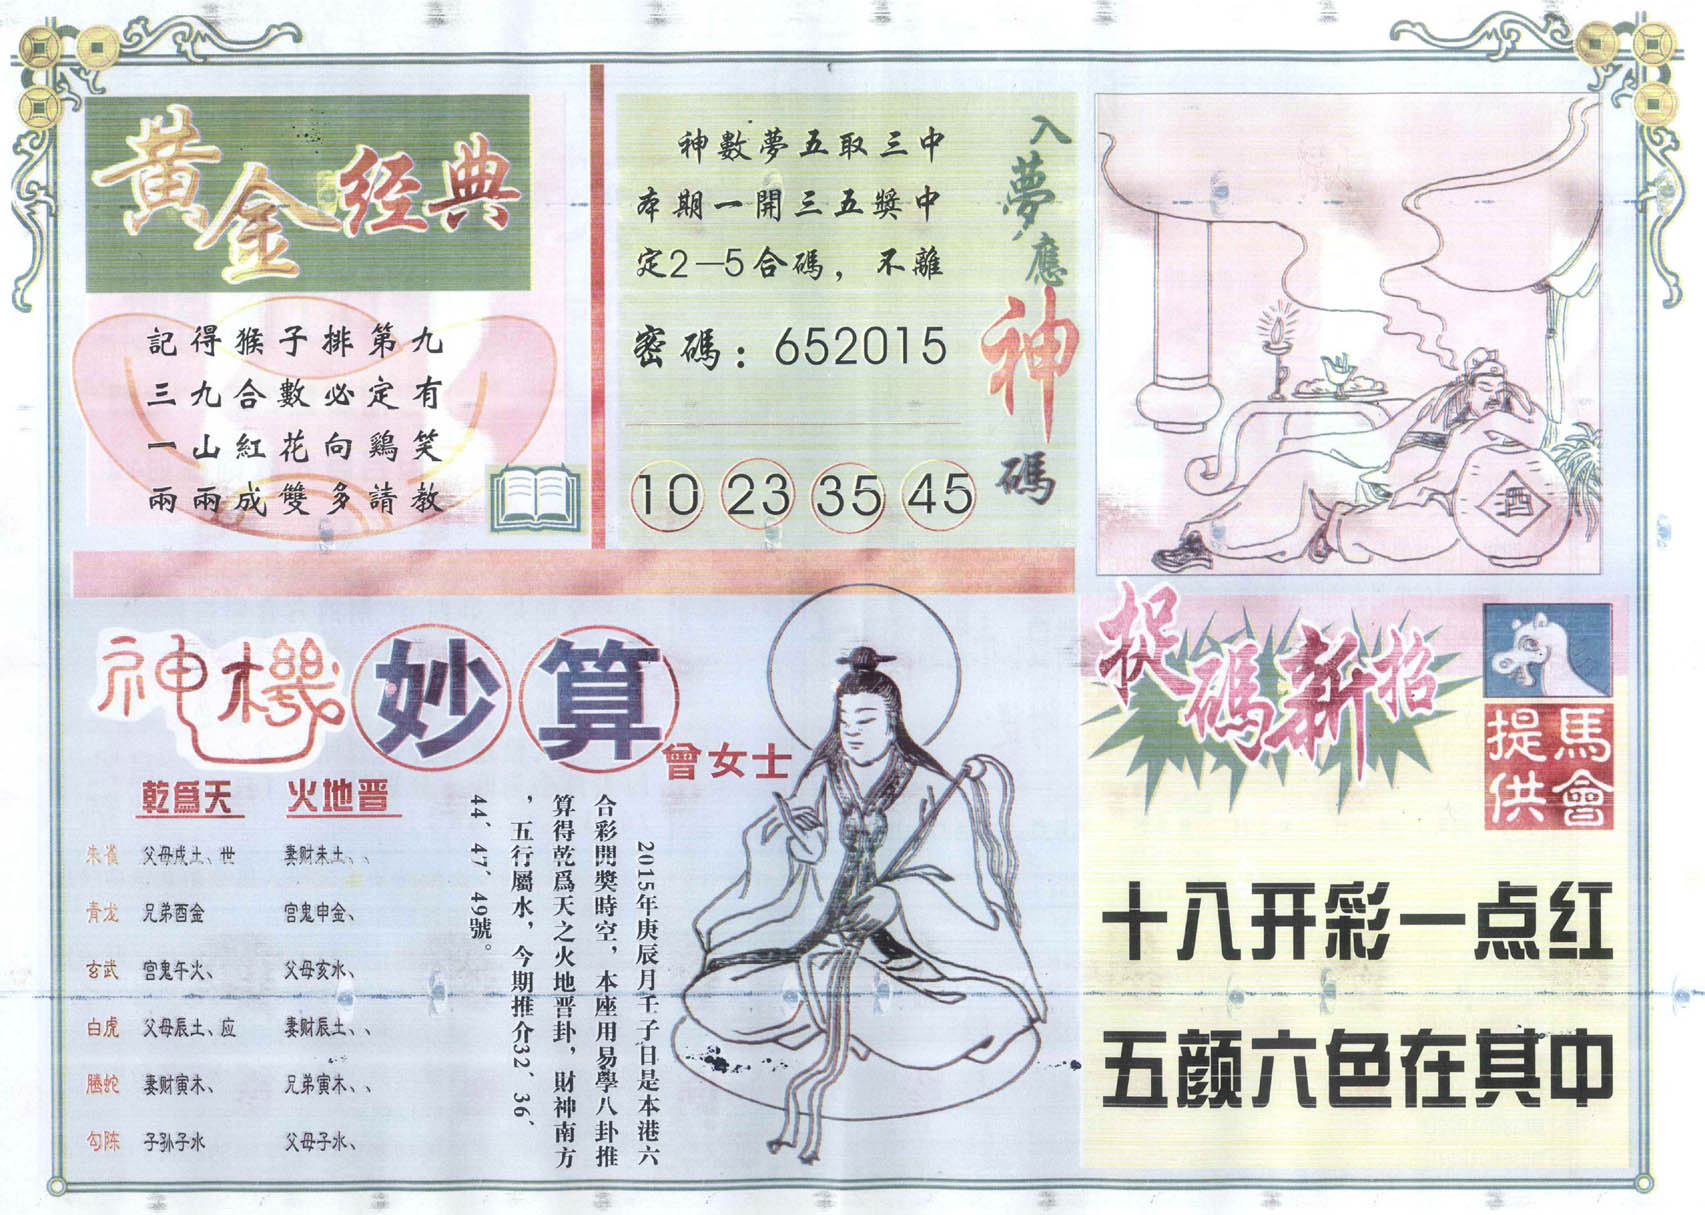 黃金经典
記得猴子排第九
三九合數必定有
一山紅花向鷄笑
兩兩成雙多請教
神數夢五取三中
本期一開三五獎中
定2—5合碼，不離
密碼：652015
10 23 35 45
入夢應神碼
酒
神機妙算
曾女士
乾爲天 火地晋
朱雀 父母戌土、世 妻财未土、、
青龙 兄弟酉金 官鬼申金、
玄武 官鬼午火、 父母亥水、
白虎 父母辰土、应 妻财辰土、、
腾蛇 妻财寅木、 兄弟寅木、、
勾陈 子孙子水 父母子水、
2015年庚辰月壬子日是本港六
合彩開獎時空，本座用易學八卦推
算得乾爲天之火地晋卦，財神南方
，五行屬水，今期推介32、36、
44、47、49號。
捉碼新招
馬會提供
十八开彩一点红
五颜六色在其中